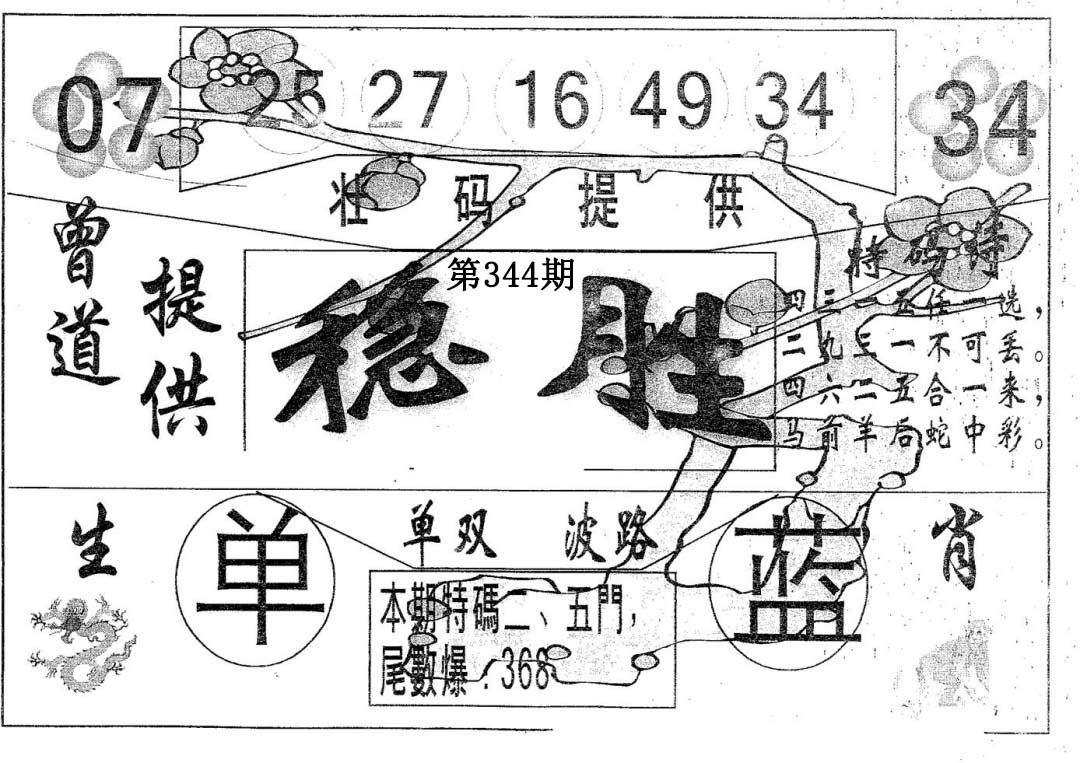 07 25 27 16 49 34 34
壮码提供
曾道
提供
第344期
稳胜
特码诗
四三一五任一选，
二九三一不可丢。
四六二五合一来，
马前羊后蛇中彩。
生肖
单双 波路
单
蓝
本期特碼二、五門，
尾數爆：368